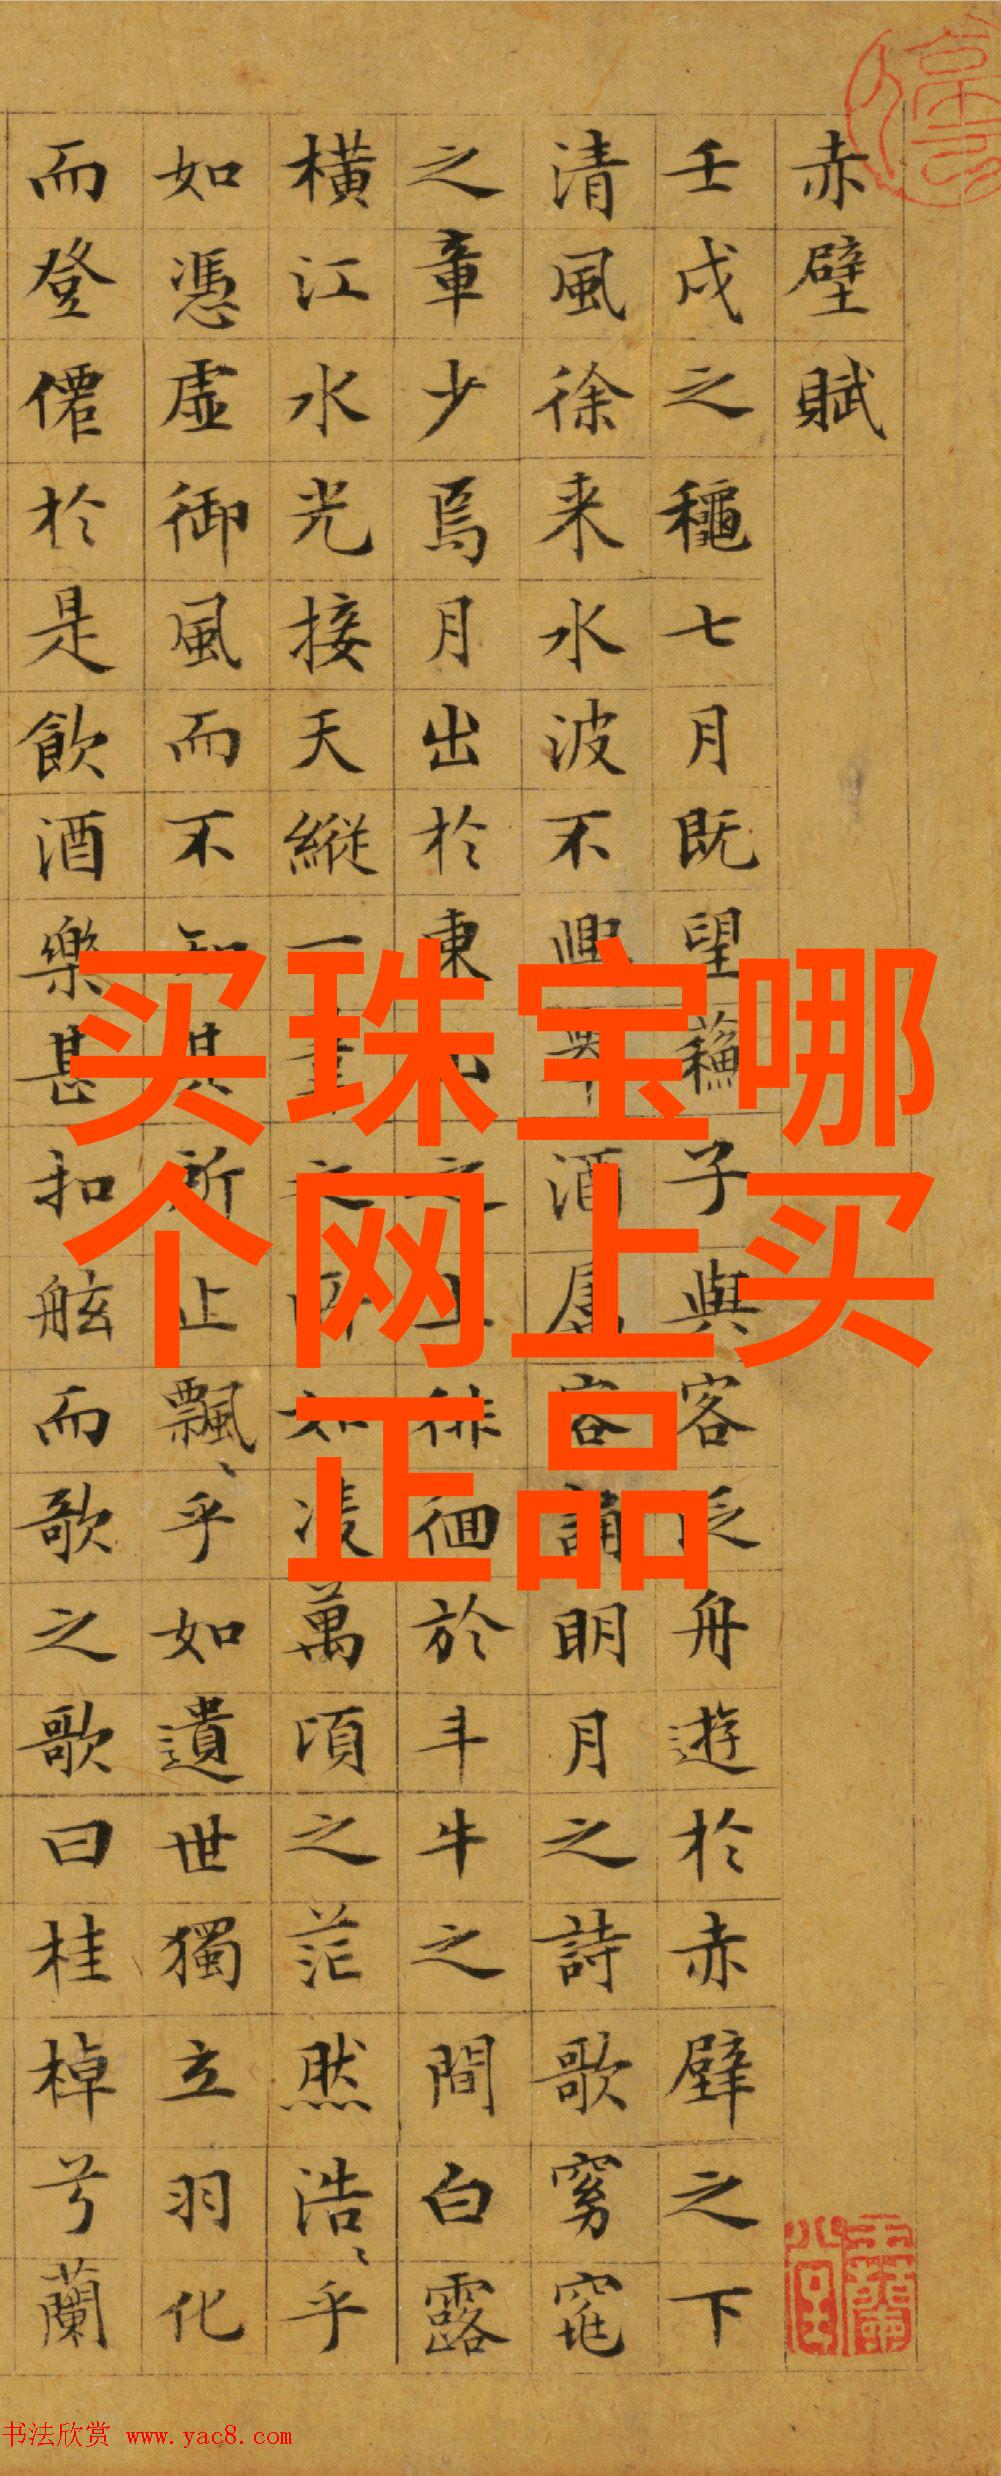 赤壁賦
壬戌之龝七月既望蘓子與客泛舟遊於赤壁之下
清風徐来水波不興舉酒屬客誦明月之詩歌窈窕
之章少焉月出於東山之上徘徊於斗牛之間白露
橫江水光接天縱一葦之所如凌萬頃之茫然浩〻乎
如憑虛御風而不知其所止飄〻乎如遺世獨立羽化
而登僊於是飲酒樂甚扣舷而歌之歌曰桂棹兮蘭
买珠宝哪
个网上买
正品
书法欣赏 www.yac8.com